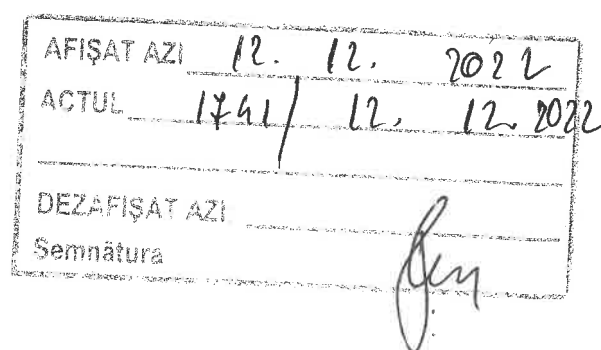 AFIȘAT AZI 12. 12. 2022
ACTUL 1741/ 12. 12. 2022
DEZAFIȘAT AZI
Semnătura